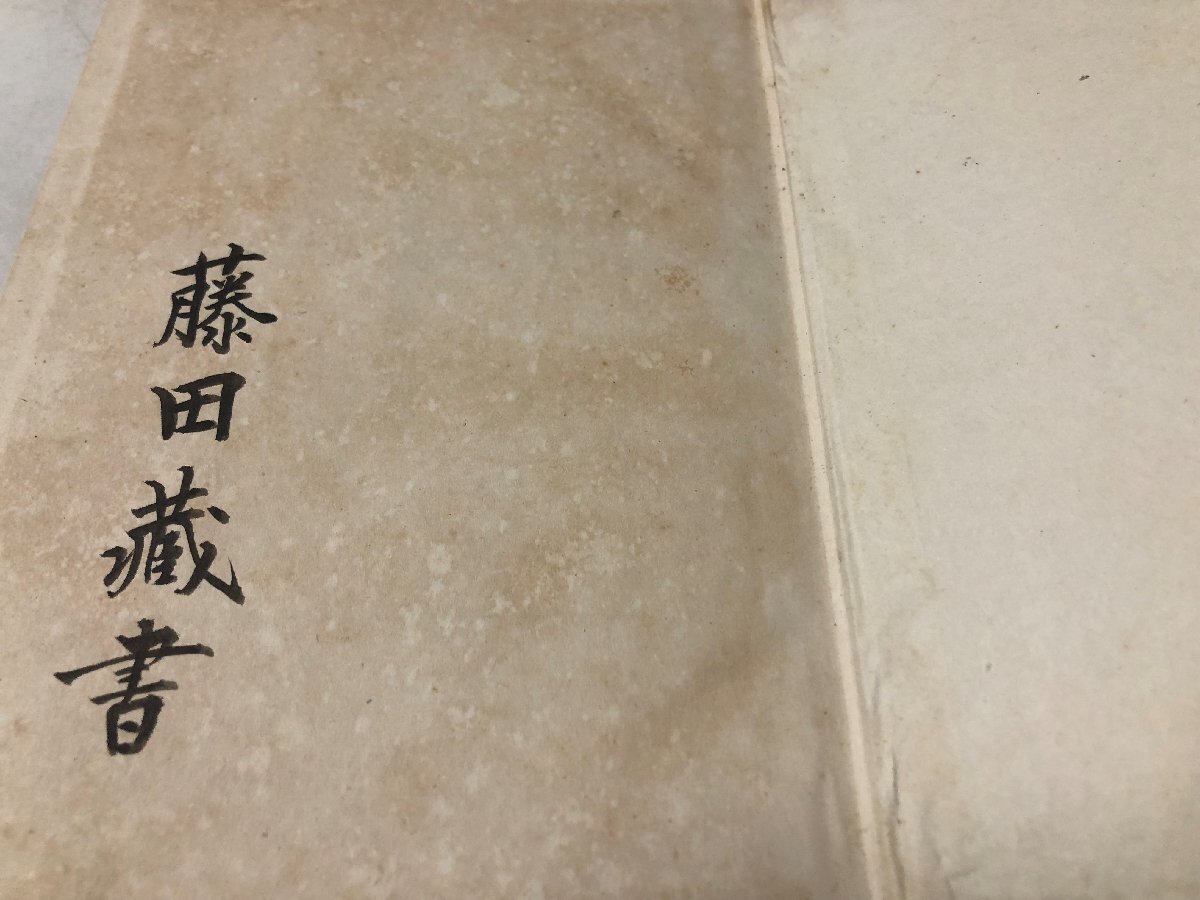 藤田藏書